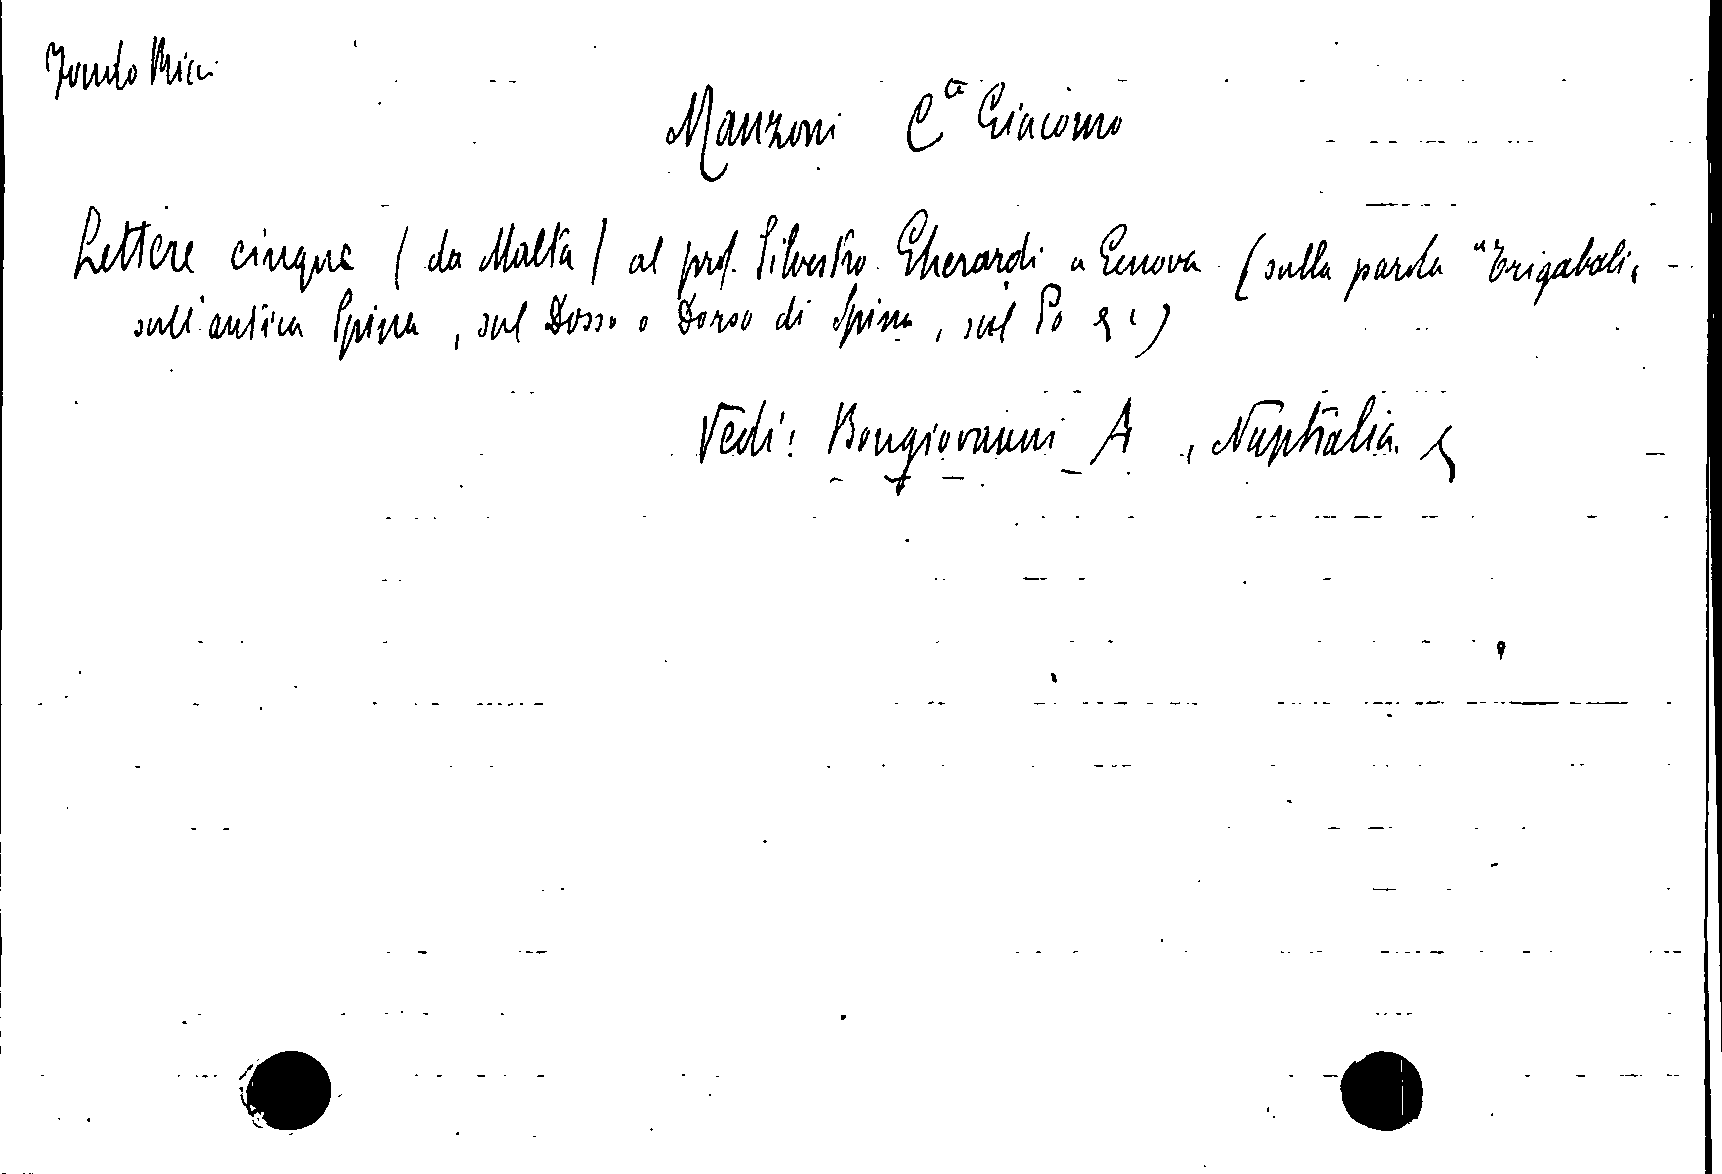 Fondo Ricci
Manzoni C.te Giacomo
Lettere cinque (da Malta) al prof. Silvestro Gherardi a Genova (sulla parola "Trigaboli,
sull'antica Spina, sul Dosso o Dorso di Spina, sul Po &c)
Vedi: Bongiovanni A, Nuptialia &